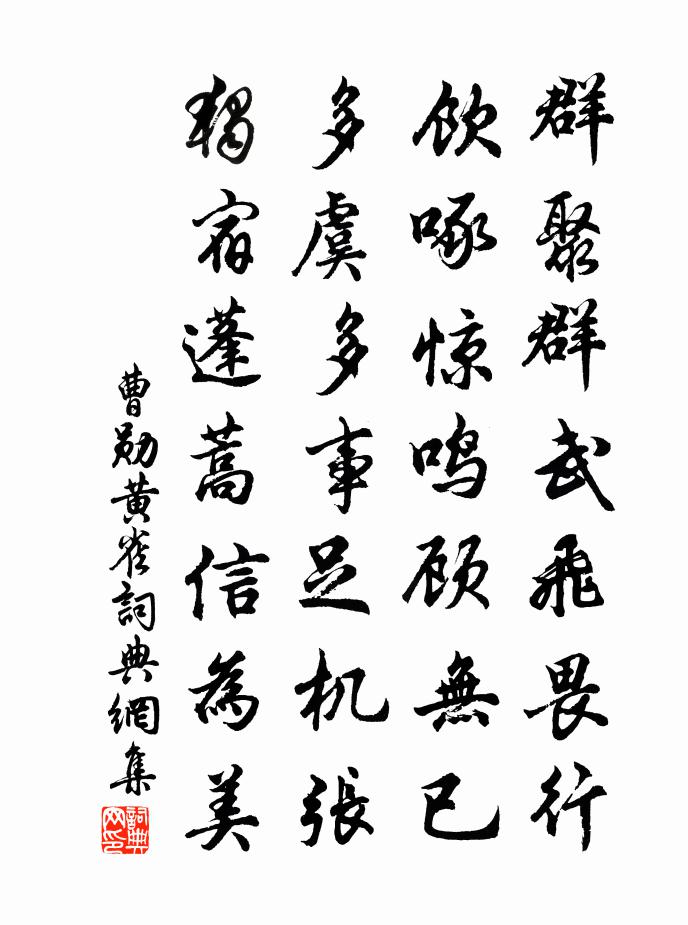 群聚群武飛畏行
飲啄惊鳴顾無已
多虞多事足机張
獨宿蓬蒿信為美
曹勛黄雀詞典網集
詞典网印